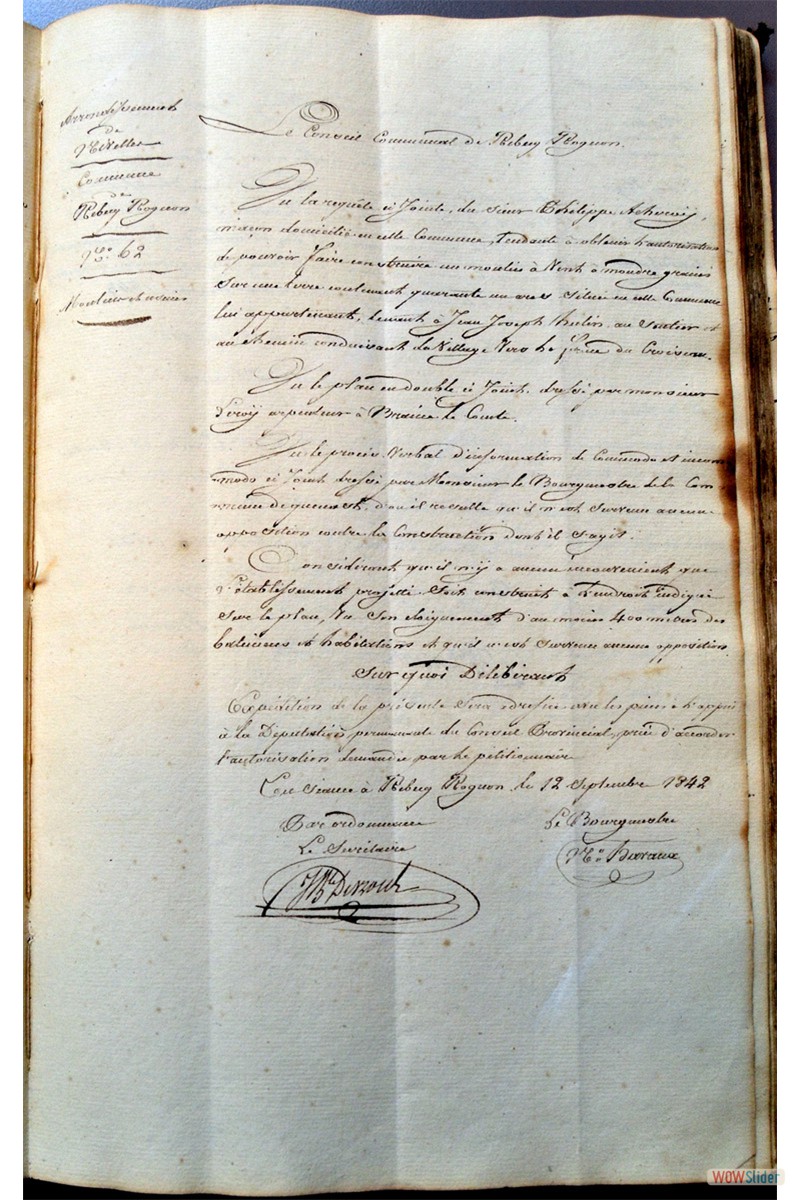 Arrondissement
de
Nivelles
Commune
de
Rebecq Rognon
N° 62
Moulins et usines
Le Conseil Communal de Rebecq Rognon.
Vu la requête ci Jointe, du sieur Philippe
maçon domicilié en cette Commune, tendante à obtenir l'autorisation
de pouvoir faire construire un moulin à Vent à moudre grains
sur une terre contenant quarante un ares située en cette Commune
lui appartenant, tenant à Jean Joseph Hulin, au Sentier et
au chemin conduisant du Village Vers la ferme du Croiseau.
Vu le plan en double ci Joint, dressé par monsieur
Leroÿ arpenteur à Braine le Comte.
Vu le procès Verbal d'information de Commodo et incom
modo ci Joint dressé par Monsieur le Bourgmestre de la Com
mune de quenast, d'où il resulte qu'il n'est survenu aucune
opposition contre la Construction dont il s'agit.
Considérant qu'il n'ÿ a aucun inconvenient que
l'établissement projetté soit construit à l'endroit indiqué
sur le plan, Vu son eloignement d'au moins 400 mètres des
batisses et habitations et qu'il n'est survenu aucune opposition
Sur quoi Délibérant
Expédition de la présente sera adressée avec les pieces à l'appui
à la Députation permanente du Conseil Provincial, priée d'accorder
l'autorisation demandée par le pétitionnaire
En séance à Rebecq Rognon le 12 Septembre 1842
Par ordonnance
Le Bourgmestre
Le Secrétaire
WOWSlider